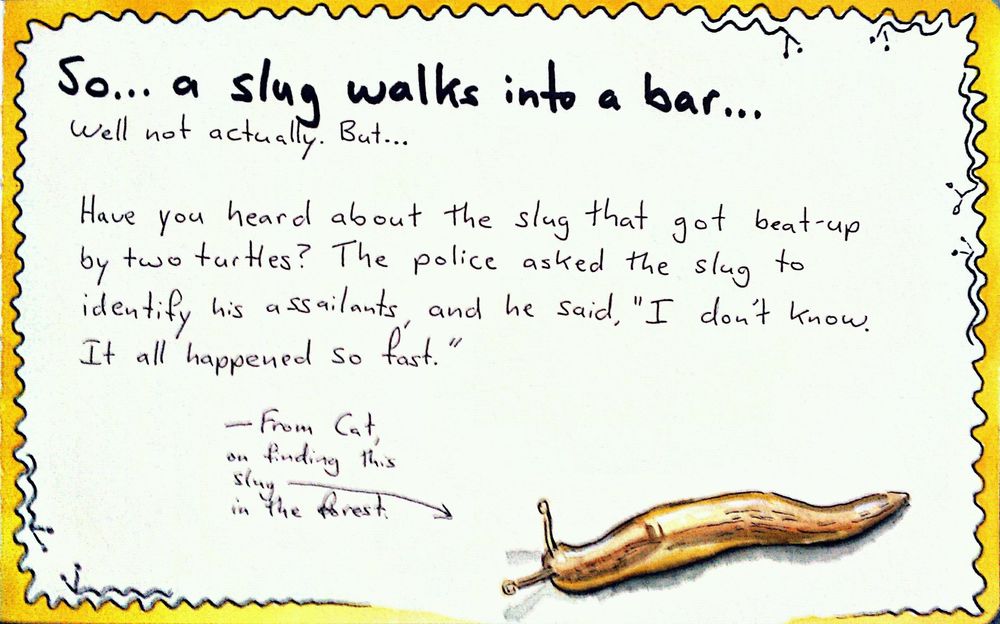 So... a slug walks into a bar...
Well not actually. But...
Have you heard about the slug that got beat-up
by two turtles? The police asked the slug to
identify his assailants, and he said, "I don't know.
It all happened so fast."
— From Cat,
on finding this
slug
in the forest.